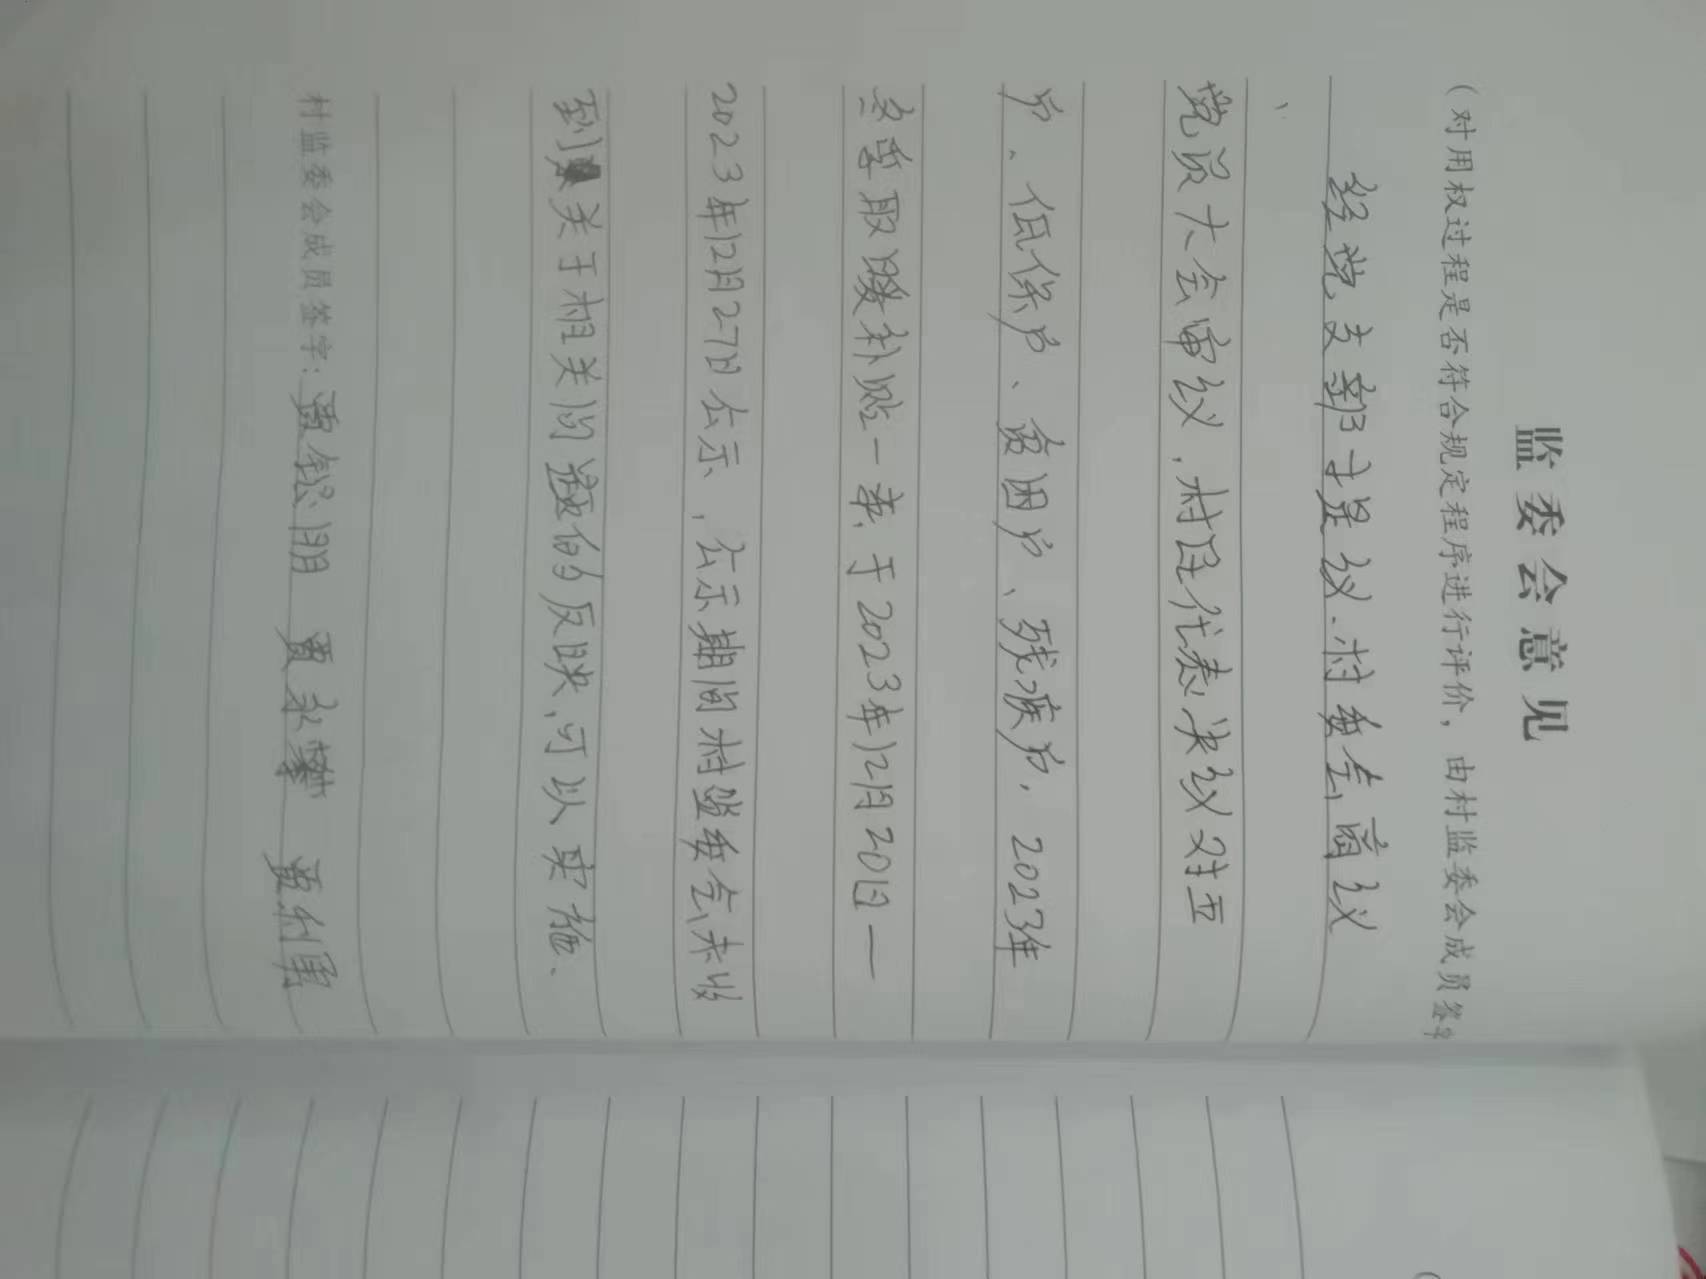 监委会意见
(对用权过程是否符合规定程序进行评价，由村监委会成员签字
经党支部提议、村委会商议
党员大会审议，村民代表决议对五
户、低保户、贫困户、残疾户，2023年
冬季取暖补贴一事，于2023年12月20日一
2023年12月27日公示，公示期间村监委会未收
到关于相关问题的反映，可以实施、
村监委会成员签字：贾 贾永攀 贾利勇